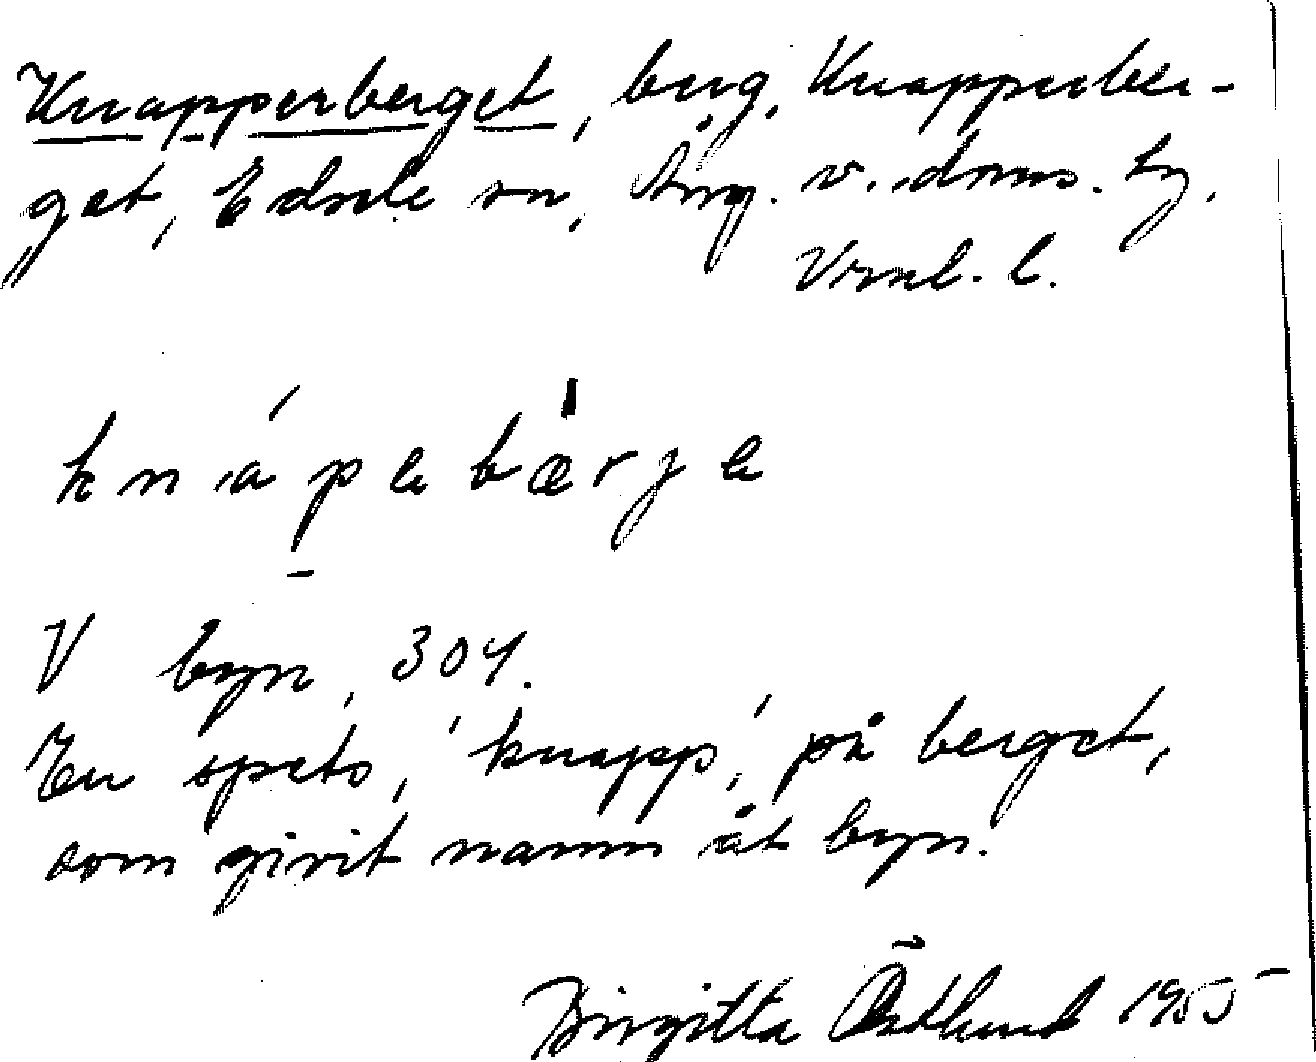 Knapperberget, berg, Knapperber-
get, Edsele sn, Ång. v. doms. tg,
Vrnl. l.
knápebærje
V byn, 304.
En spets, 'knapp', på berget,
som givit namn åt byn.
Birgitta Östlund 1955